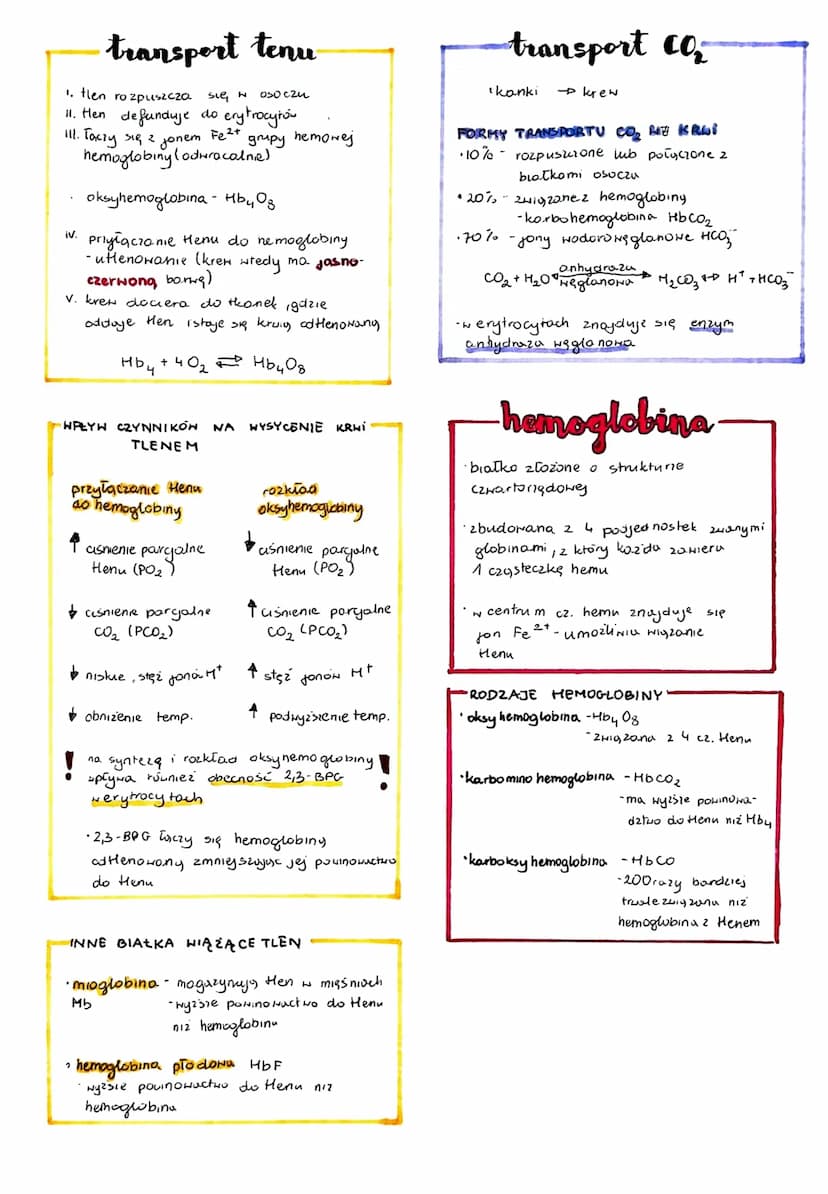 transport tenu
I. tlen rozpuszcza się w osoczu
II. tlen defunduje do erytrocytów
III. łączy się z jonem Fe²⁺ grupy hemowej
hemoglobiny (odwracalnie)
· oksyhemoglobina - Hb₄O₈
IV. przyłączanie tlenu do hemoglobiny
- utlenowanie (krew wtedy ma jasno-
czerwoną barwę)
V. krew dociera do tkanek, gdzie
oddaje tlen i staje się krwią odtlenowaną
Hb₄ + 4O₂ ⇌ Hb₄O₈
transport CO₂
tkanki → krew
FORMY TRANSPORTU CO₂ WE KRWI
· 10% - rozpuszczone lub połączone z
białkami osocza
· 20% - związane z hemoglobiny
- karbohemoglobina HbCO₂
· 70% - jony wodorowęglanowe HCO₃⁻
CO₂ + H₂O ⟷ anhydraza węglanowa H₂CO₃ ↔ H⁺ + HCO₃⁻
- w erytrocytach znajduje się enzym
anhydraza węglanowa
WPŁYW CZYNNIKÓW NA WYSYCENIE KRWI
TLENEM
przyłączanie tlenu
do hemoglobiny
↑ ciśnienie parcjalne
tlenu (PO₂)
↓ ciśnienie parcjalne
CO₂ (PCO₂)
↓ niskie, stęż jonów H⁺
↓ obniżenie temp.
rozkład
oksyhemoglobiny
↓ ciśnienie parcjalne
tlenu (PO₂)
↑ ciśnienie parcjalne
CO₂ (PCO₂)
↑ stęż jonów H⁺
↑ podwyższenie temp.
! na syntezę i rozkład oksyhemoglobiny !
wpływa również obecność 2,3-BPG
w erytrocytach
· 2,3-BPG łączy się hemoglobiny
odtlenowany zmniejszając jej powinowactwo
do tlenu
hemoglobina
· białko złożone o strukturze
czwartorzędowej
· zbudowana z 4 podjednostek zwanymi
globinami, z który każda zawiera
1 cząsteczkę hemu
· w centrum cz. hemu znajduje się
jon Fe²⁺ - umożliwia wiązanie
tlenu
RODZAJE HEMOGLOBINY
· oksyhemoglobina - Hb₄O₈
- związana z 4 cz. tlenu
· karbominohemoglobina - HbCO₂
- ma wyższe powinowa-
dztwo do tlenu niż Hb₄
· karboksyhemoglobina - HbCO
- 200 razy bardziej
trwale związana niż
hemoglobina z tlenem
INNE BIAŁKA WIĄŻĄCE TLEN
· mioglobina - magazynują tlen w mięśniach
Mb - wyższe powinowactwo do tlenu
niż hemoglobina
· hemoglobina płodowa HbF
· wyższe powinowactwo do tlenu niż
hemoglobina